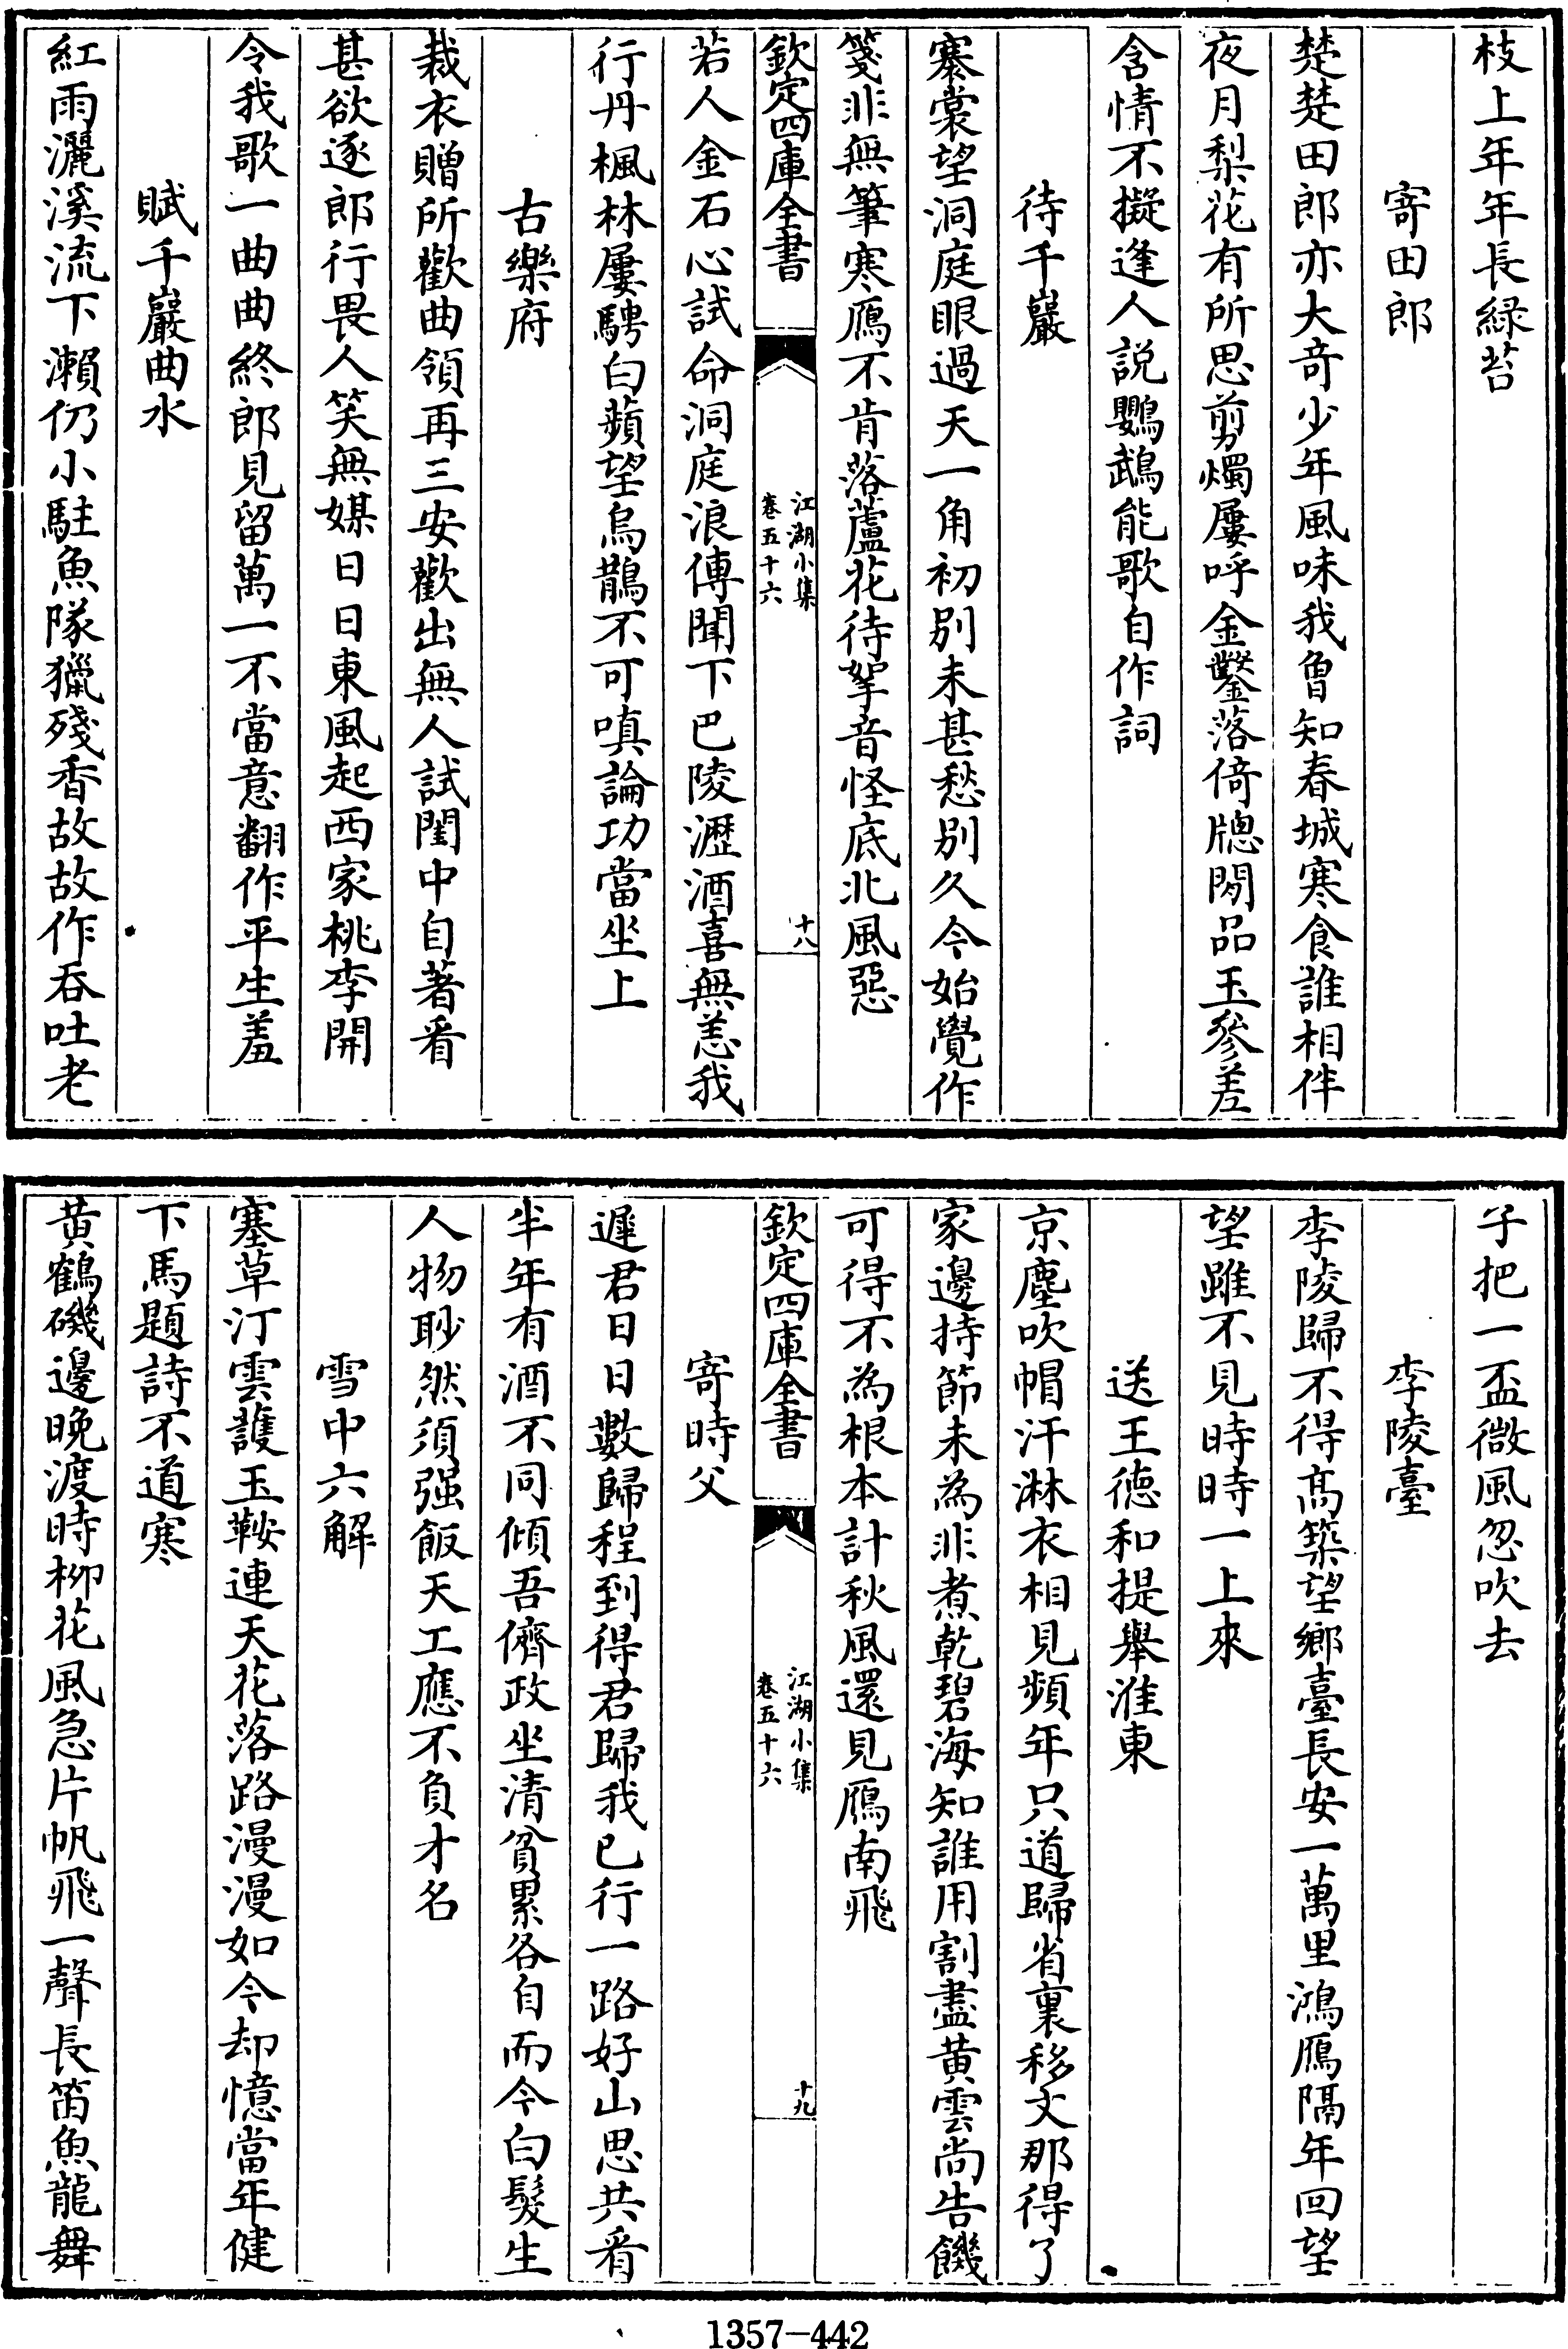 枝上年年長緑苔
寄田郎
楚楚田郎亦大奇少年風味我曾知春城寒食誰相伴
夜月梨花有所思剪燭屢呼金鑿落倚牕閒品玉參差
含情不擬逢人説鸚鵡能歌自作詞
待千巖
褰裳望洞庭眼過天一角初别未甚愁别久今始覺作
箋非無筆寒鴈不肯落蘆花待挐音怪底北風惡
欽定四庫全書
江湖小集
卷五十六
十八
若人金石心試命洞庭浪傳聞下巴陵瀝酒喜無恙我
行丹楓林屢騁白蘋望烏鵲不可嗔論功當坐上
古樂府
裁衣贈所歡曲領再三安歡出無人試閨中自著看
甚欲逐郎行畏人笑無媒日日東風起西家桃李開
令我歌一曲曲終郎見留萬一不當意翻作平生羞
賦千巖曲水
紅雨灑溪流下瀨仍小駐魚隊獵殘香故故作吞吐老
子把一盃微風忽吹去
李陵臺
李陵歸不得髙築望鄉臺長安一萬里鴻鴈隔年回望
望雖不見時時一上來
送王德和提舉淮東
京塵吹帽汗淋衣相見頻年只道歸省裏移文那得了
家邊持節未為非煮乾碧海知誰用割盡黄雲尚告饑
可得不為根本計秋風還見鴈南飛
欽定四庫全書
江湖小集
卷五十六
十九
寄時父
遲君日日數歸程到得君歸我已行一路好山思共看
半年有酒不同傾吾儕政坐清貧累各自而今白髮生
人物眇然須强飯天工應不負才名
雪中六解
塞草汀雲護玉鞍連天花落路漫漫如今却憶當年健
下馬題詩不道寒
黄鶴磯邊晚渡時栁花風急片帆飛一聲長笛魚龍舞
1357-442